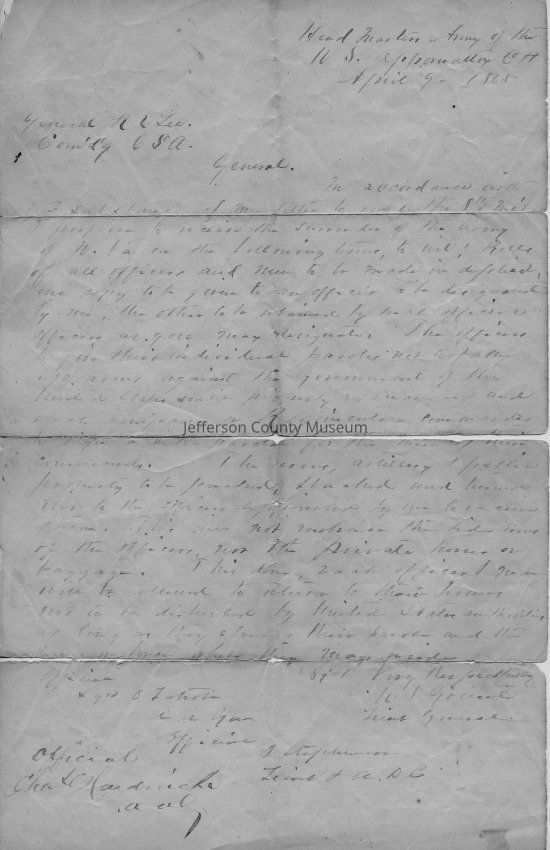 Head Quarters Army of the
U. S. Appomattox C H
April 9- 1865
General R E Lee.
Comdg C S A.
General.
In accordance with
substance of my letter to you on the 8th inst
I propose to receive the surrender of the army
of N. Va on the following terms, to wit; Rolls
of all officers and men to be made in duplicate,
one copy to be given to an officer to be designated
by me, the other to be retained by such officer or
officers as you may designate. The officers
to give their individual paroles not to take
up arms against the government of the
United States until properly exchanged and
commander
parole for the men of their
commands. The arms, artillery & public
property to be parked, stacked and turned
over to the officers appointed by me to receive
them. This will not embrace the side arms
of the officers, nor the private horses or
baggage. This done, each officer & man
will be allowed to return to their homes
not to be disturbed by United States authorities
as long as they observe their parole and the
laws where they may reside
Very Respectfully
U S Grant
Lieut General.
Official
A A Gen
Official
Official
Lieut & A. D C
Chas
Jefferson County Museum